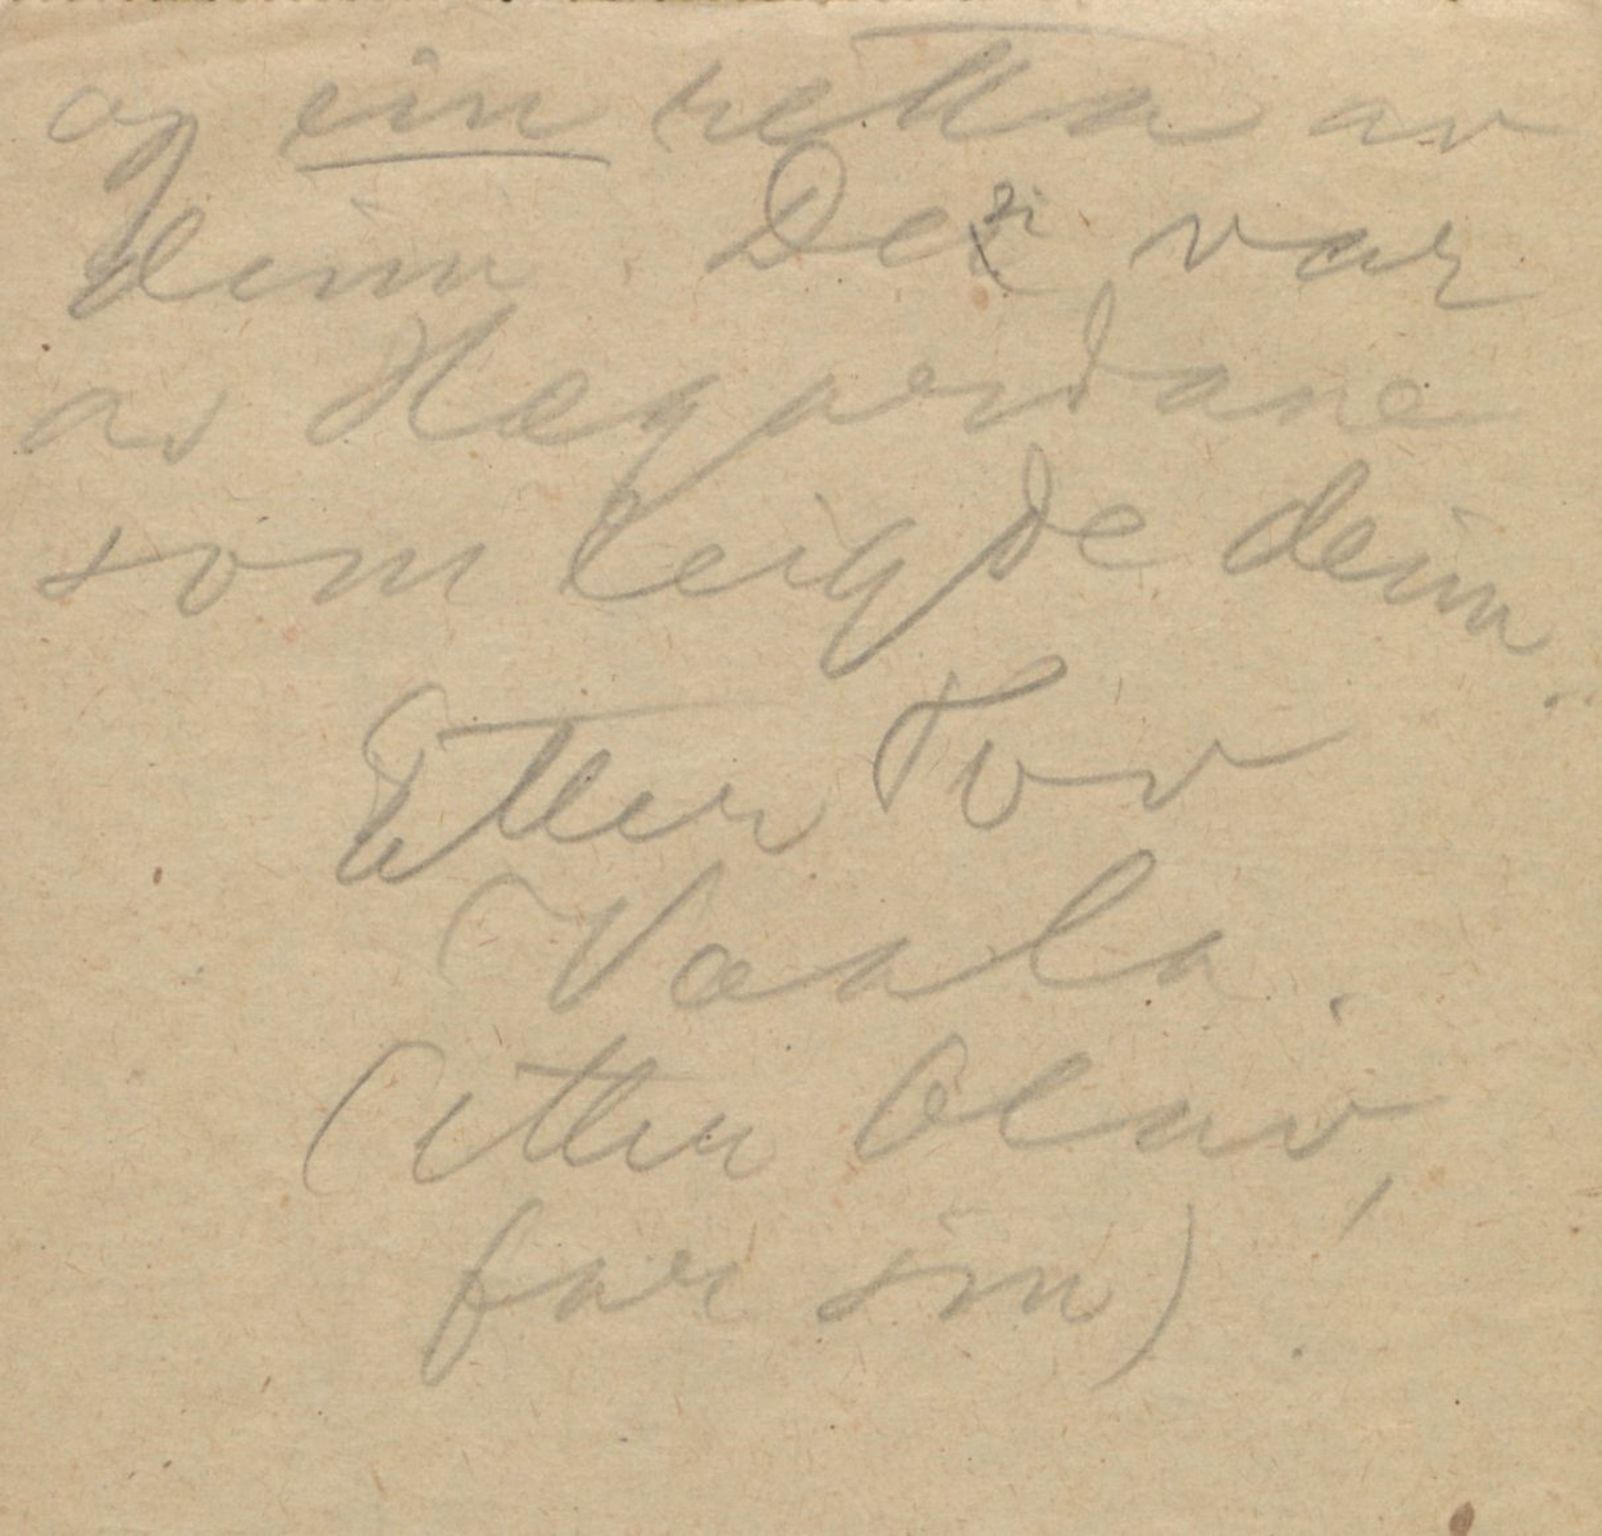 og ein retta av
deim. Dei var
av Hægperdane
som leigde deim.
Etter Tov
Vaala.
(etter Olav,
far sin)